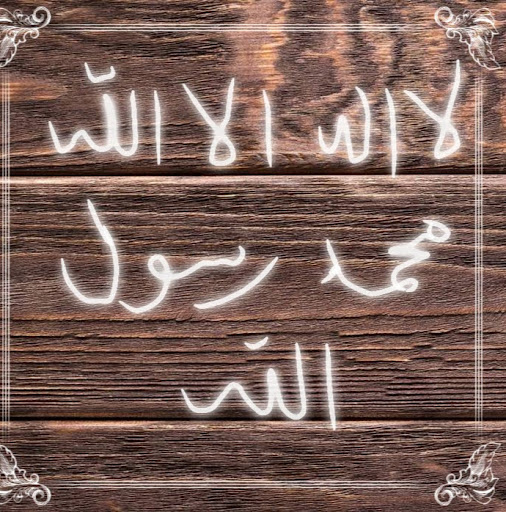 لا اله الا الله
محمد رسول
الله